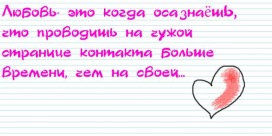 Любовь- это когда осазнаёшь,
что проводишь на чужой
странице контакта больше
времени, чем на своей...